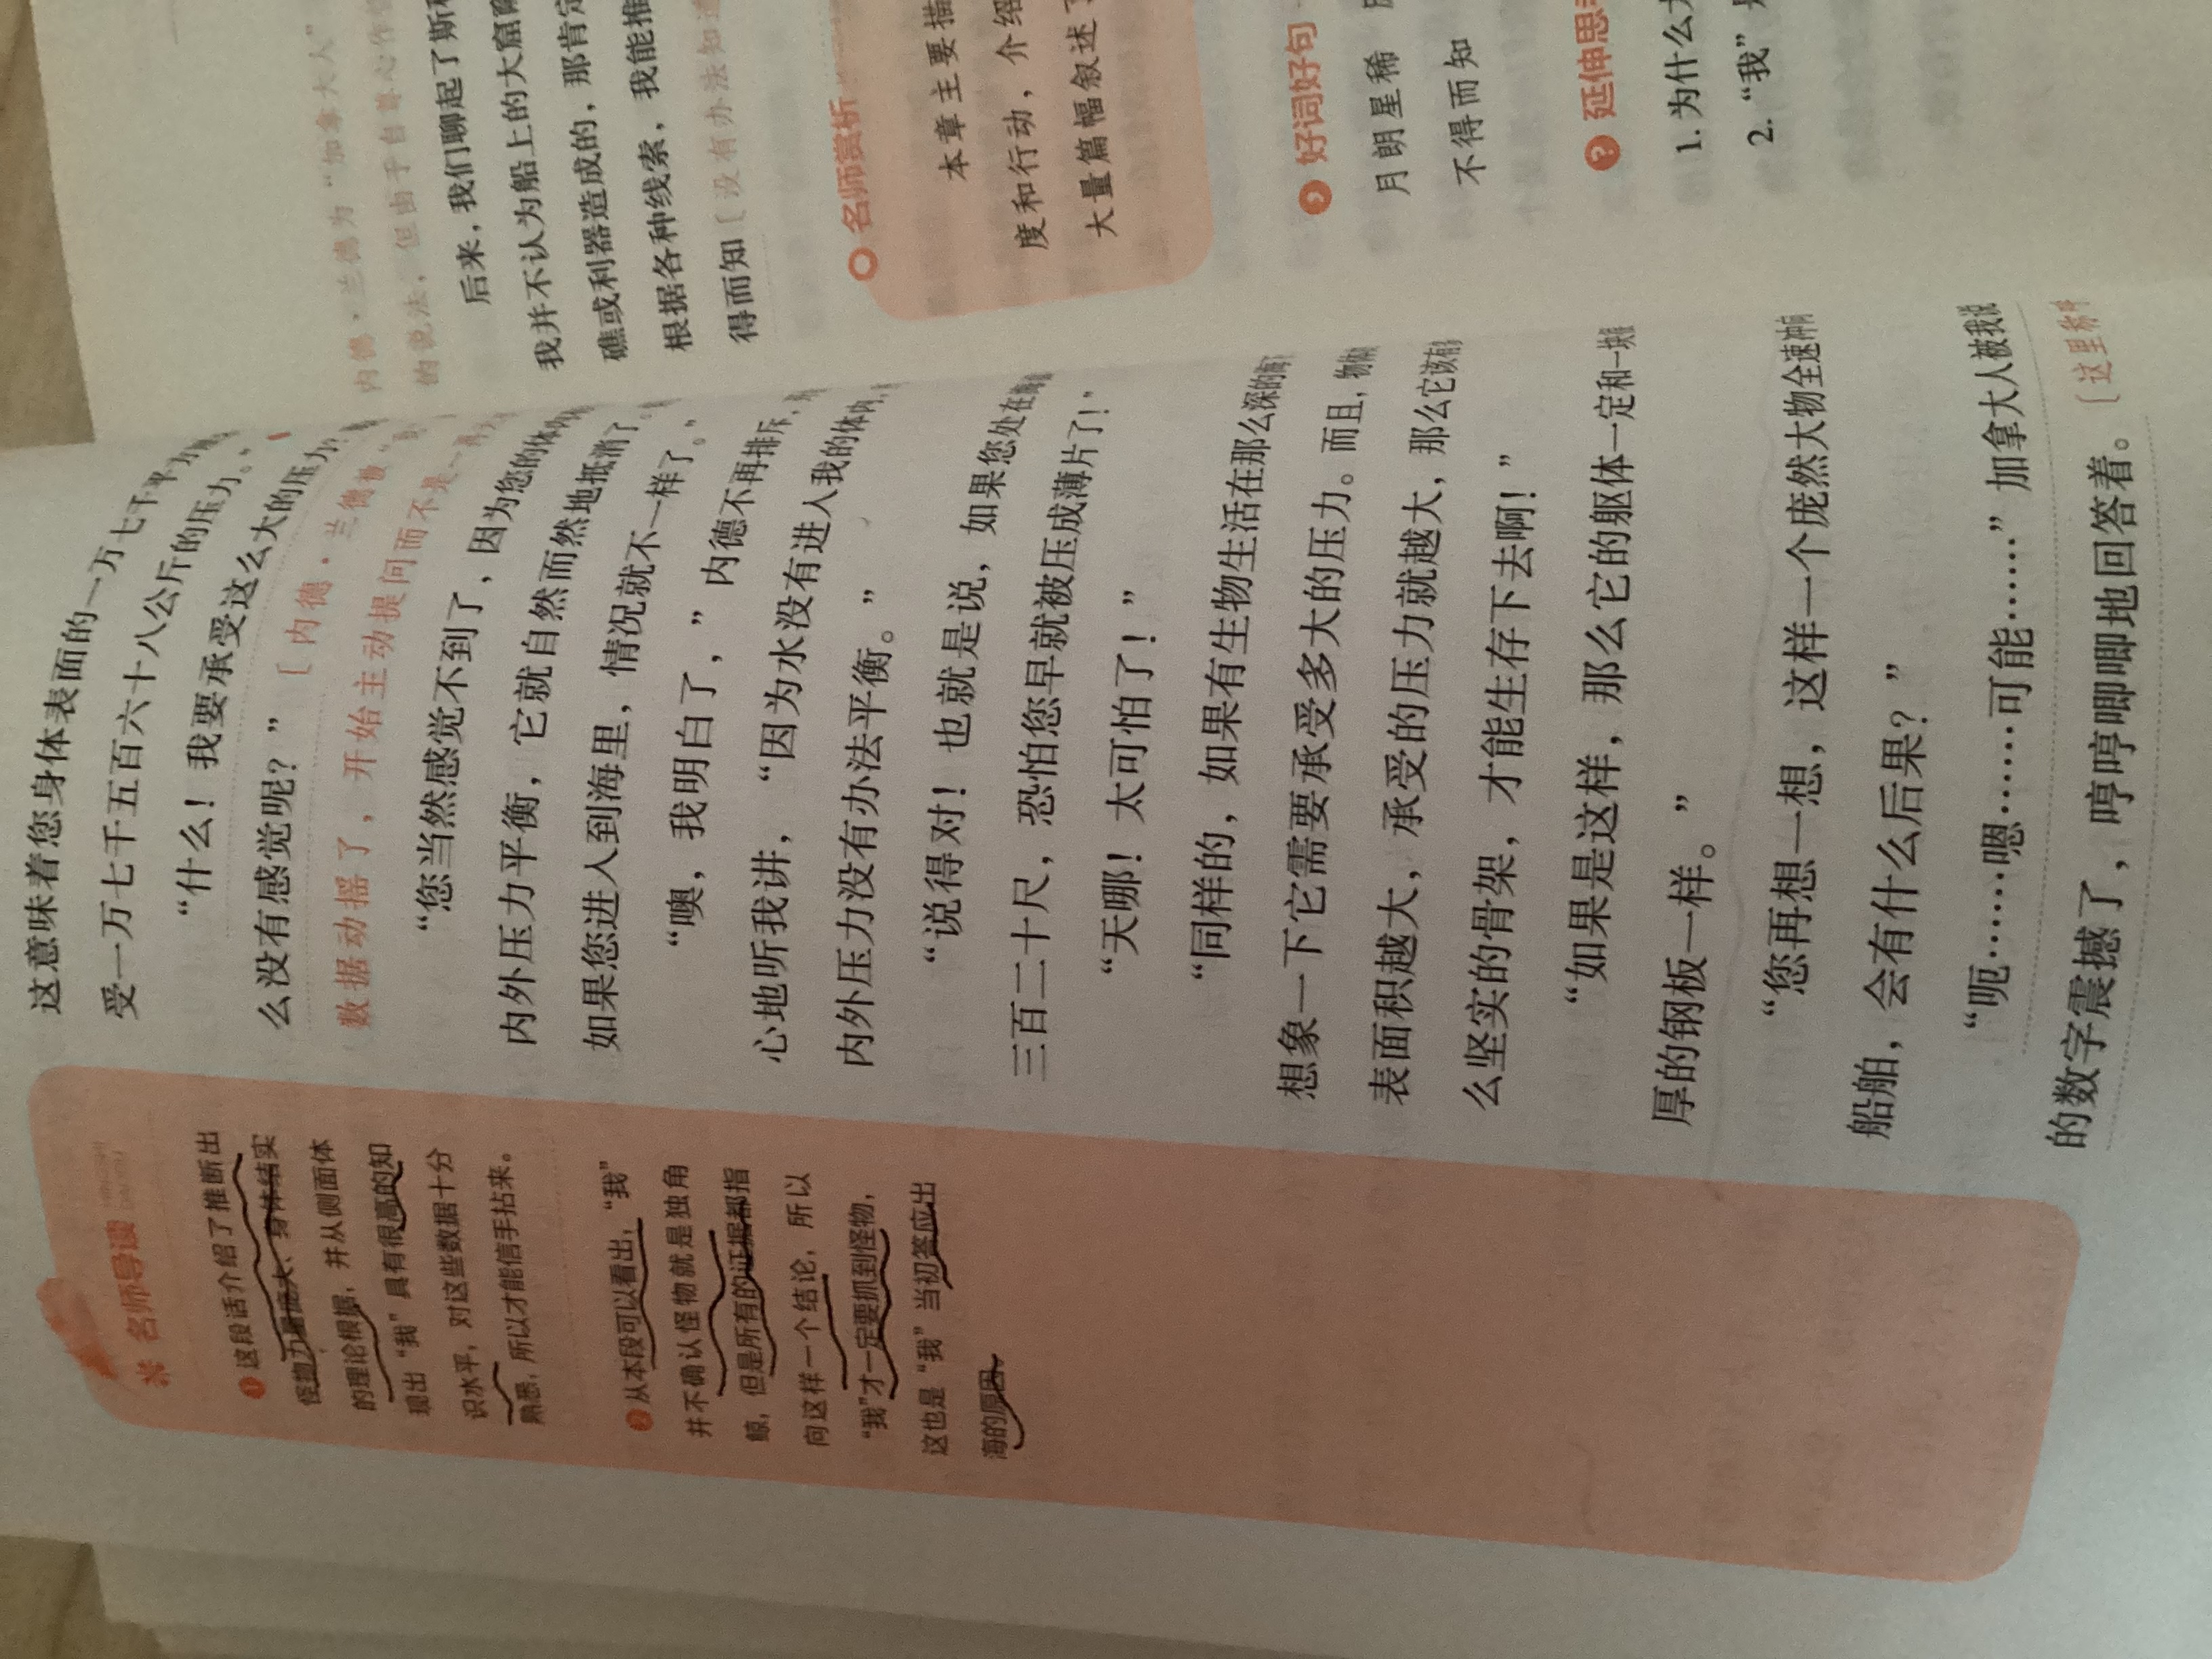 名师导读
❶这段话介绍了推断出
怪物力量庞大、身体结实
的理论根据，并从侧面体
现出“我”具有很高的知
识水平，对这些数据十分
熟悉，所以才能信手拈来。
❷从本段可以看出，“我”
并不确认怪物就是独角
鲸，但是所有的证据都指
向这样一个结论，所以
“我”才一定要抓到怪物，
这也是“我”当初答应出
海的原因。
这意味着您身体表面的一万七千平方
受一万七千五百六十八公斤的压力。”
“什么！我要承受这么大的压力，
么没有感觉呢？”〔内德·兰德被
数据动摇了，开始主动提问而不是一再
“您当然感觉不到了，因为您的体内
内外压力平衡，它就自然而然地抵消了。
如果您进入到海里，情况就不一样了。”
“噢，我明白了，”内德不再排斥，
心地听我讲，“因为水没有进入我的体内，
内外压力没有办法平衡。”
“说得对！也就是说，如果您处在海
三百二十尺，恐怕您早就被压成薄片了！”
“天哪！太可怕了！”
“同样的，如果有生物生活在那么深的海
想象一下它需要承受多大的压力。而且，物体
表面积越大，承受的压力就越大，那么它该有
么坚实的骨架，才能生存下去啊！”
“如果是这样，那么它的躯体一定和一块
厚的钢板一样。”
“您再想一想，这样一个庞然大物全速冲向
船舶，会有什么后果？”
“呃……嗯……可能……”加拿大人被我说
的数字震撼了，哼哼唧唧地回答着。〔这里称
内德·兰德为“加拿大人”
的说法，但由于自尊心作
后来，我们聊起了斯
我并不认为船上的大窟窿
礁或利器造成的，那肯定
根据各种线索，我能推
得而知〔没有办法知道
名师赏析
本章主要描
度和行动，介绍
大量篇幅叙述了
好词好句
月朗星稀
不得而知
延伸思考
1.为什么
2.“我”